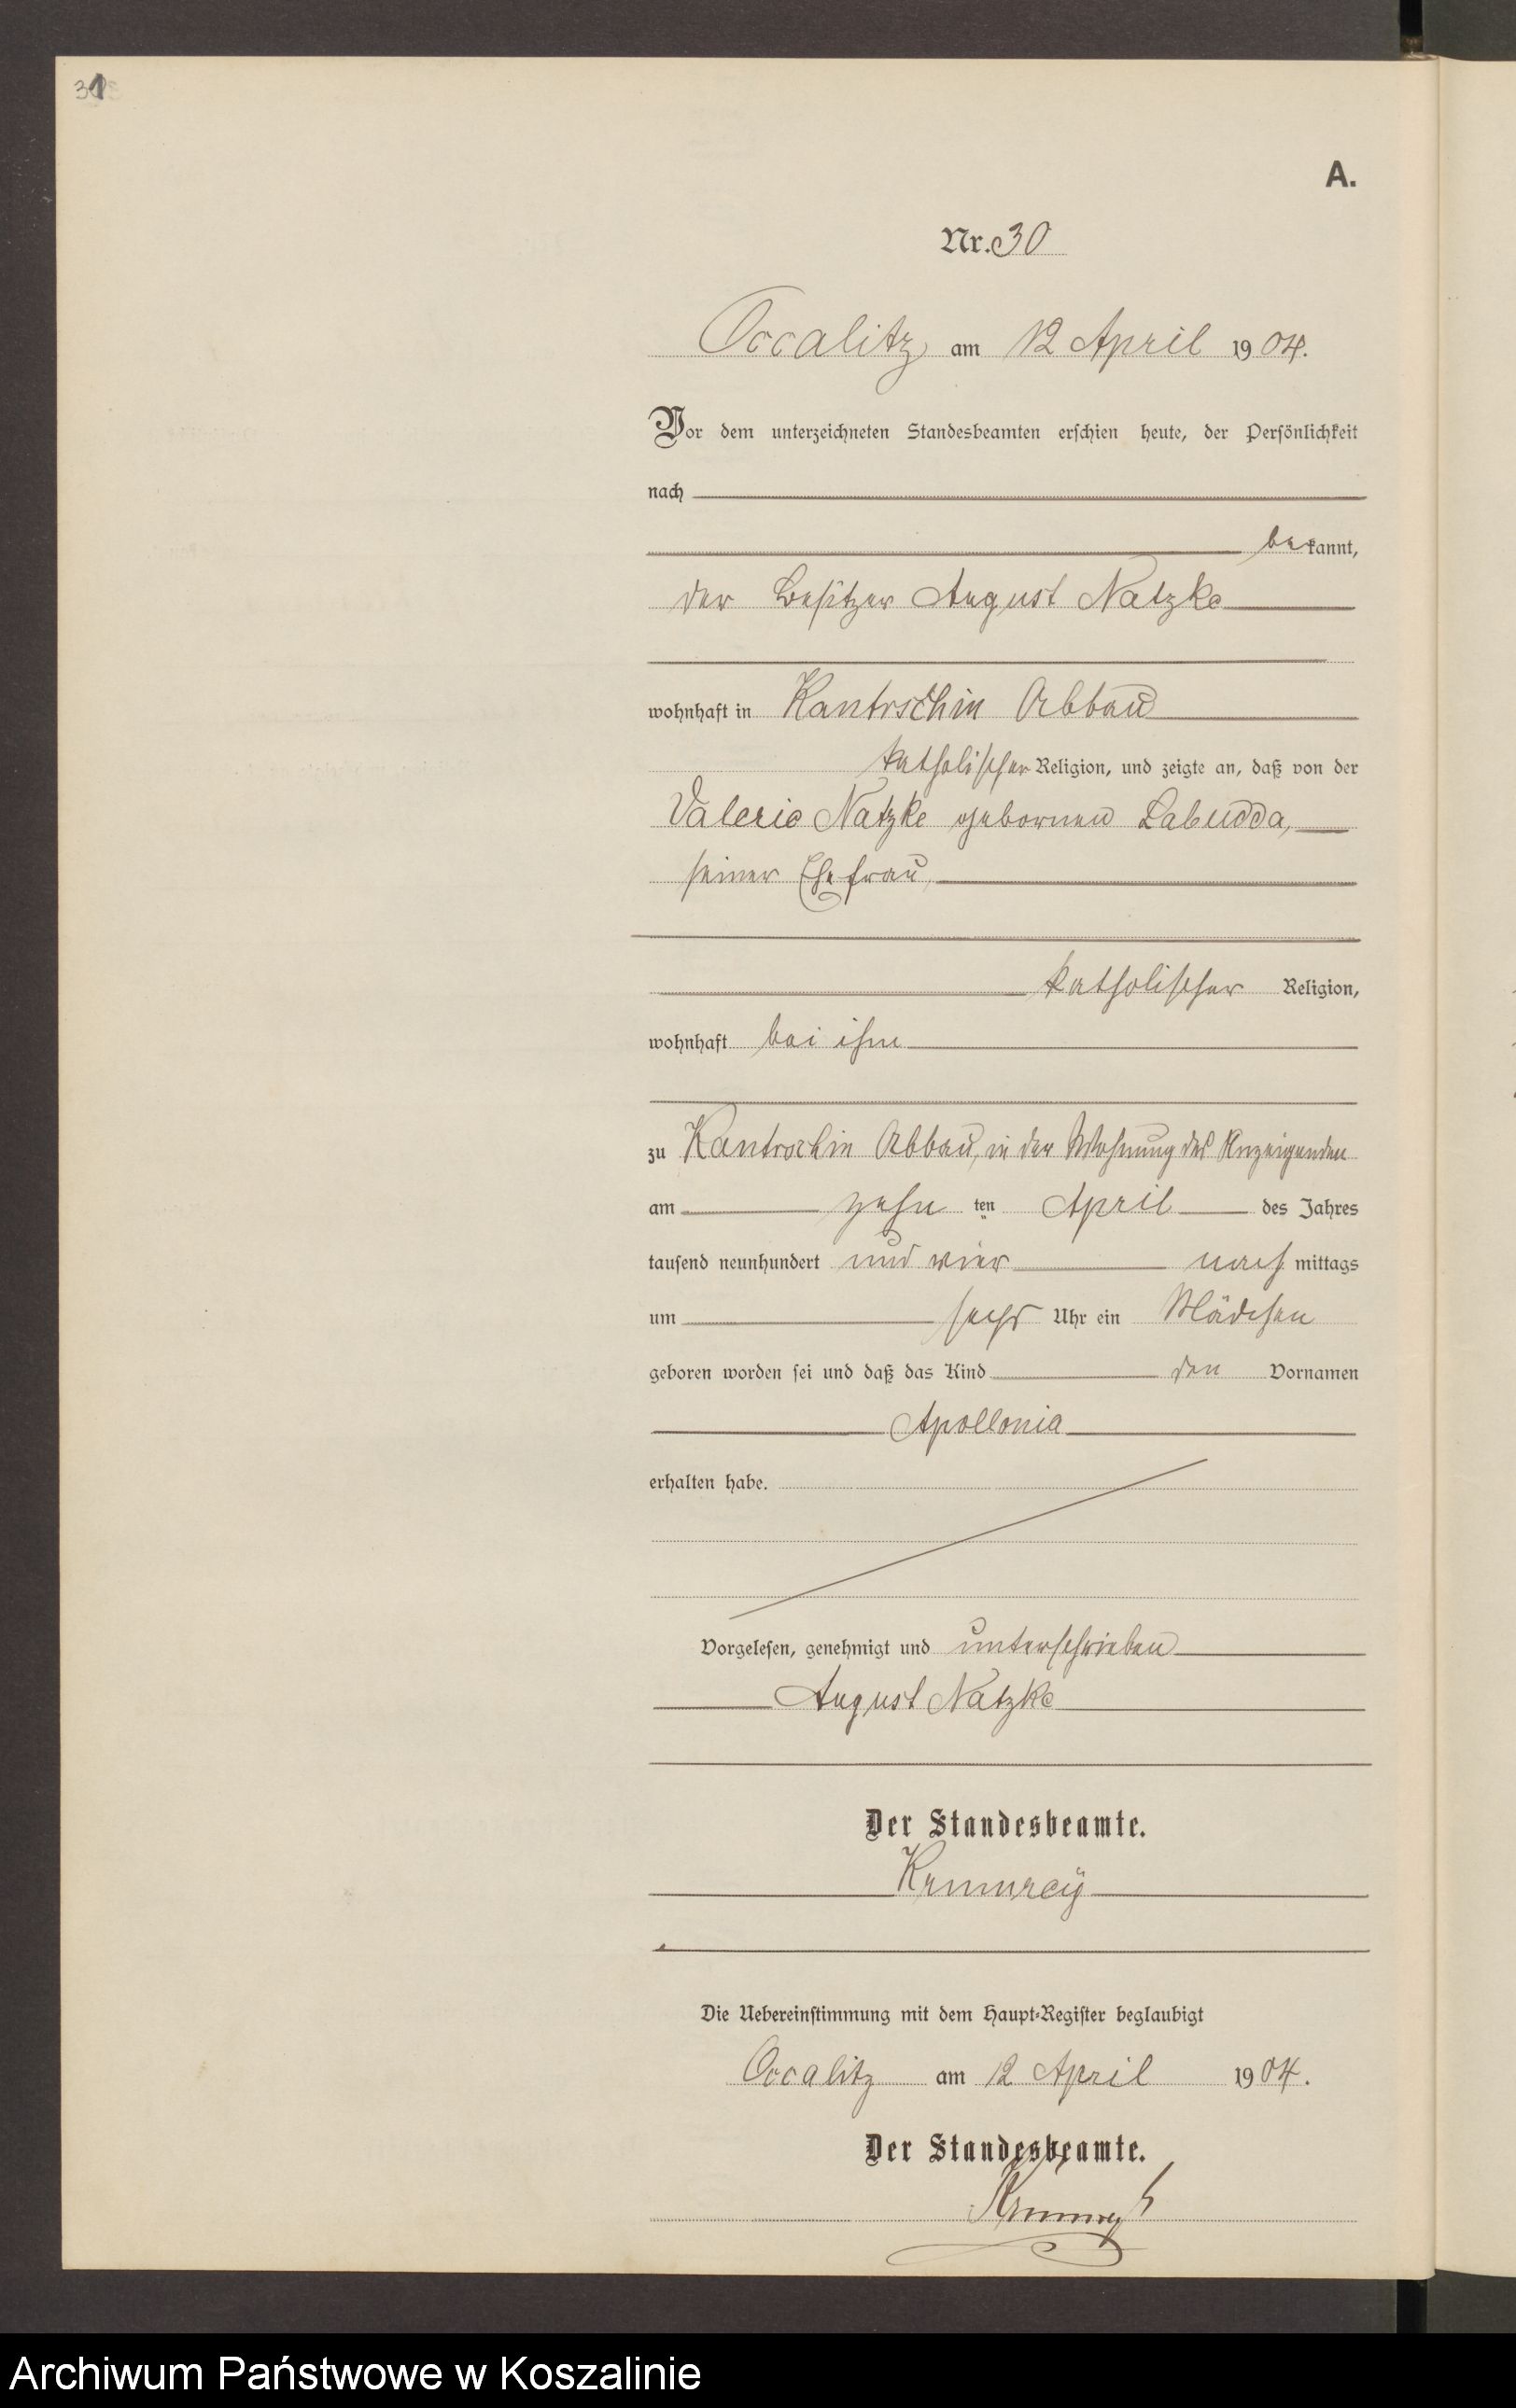 31
A.
Nr. 30
Occalitz am 12 April 1904.
Vor dem unterzeichneten Standesbeamten erschien heute, der Persönlichkeit
nach
bekannt,
der Besitzer August Natzke
wohnhaft in Kantrschin Abbau
katholischer Religion, und zeigte an, daß von der
Valerie Natzke gebornen Labudda,
seiner Ehefrau,
katholischer Religion,
wohnhaft bei ihm
zu Kantrschin Abbau, in der Wohnung des Anzeigenden
am zehn ten April des Jahres
tausend neunhundert und vier nachmittags
um sechs Uhr ein Mädchen
geboren worden sei und daß das Kind den Vornamen
Apollonia
erhalten habe.
Vorgelesen, genehmigt und unterschrieben
August Natzke
Der Standesbeamte.
Krumrey
Die Uebereinstimmung mit dem Haupt-Register beglaubigt
Occalitz am 12 April 1904.
Der Standesbeamte.
Krumrey
Archiwum Państwowe w Koszalinie